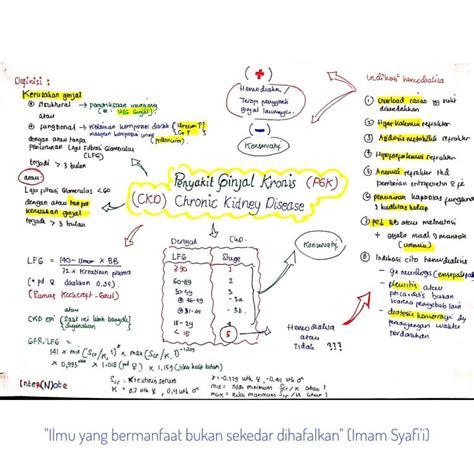 Definisi :
Kerusakan ginjal
struktural → pemeriksaan imaging
(ex : USG Ginjal)
atau
fungsional → kelainan komposisi darah (ureum ↑↑
Cr ↑
maupun komposisi urin
dengan atau tanpa
penurunan Laju Filtrasi Glomerulus
(LFG)
terjadi > 3 bulan
atau
Laju Filtrasi Glomerulus < 60
dengan atau tanpa
kerusakan ginjal
terjadi > 3 bulan
(+)
Hemodialisa /
Terapi pengganti
ginjal lainnya.
(-)
Konservatif
Penyakit Ginjal Kronis (PGK)
(CKD) Chronic Kidney Disease
Indikasi hemodialisa
① Overload cairan
② Hiperkalemia refrakter
③ Asidosis metabolik refrakter
④ refrakter
⑤ Anemia refrakter thd
pemberian entropoietin & Fe
⑥ penurunan kapasitas fungsional
/ kualitas hidup
⑦ ↓ BB atau malnutrisi
+ gejala mual & muntah
(uremia)
⑧ Indikasi cito hemodialisa
- neurologis (ensepalopati
- pleuritis atau
pericarditis bukan
karena penyebab lain
- diatesis hemorragi dg
pemanjangan waktu
perdarahan
Derajat CKD.
LFG Stage
≥ 90 1
60-89 2
30-59 3
45-59 - 3a
30-44 - 3b
15-29 4
< 15 5
Konservatif
Hemodialisa
atau
Tidak ???
LFG = (140 - Umur) x BB
72 x Kreatinin plasma
(* pd ♀ dikalikan 0,85)
(Rumus Kockcroft-Gaul)
atau
CKD epi (saat ini lebih banyak
digunakan)
GFR/LFG =
141 x min (Scr/K, 1)ᵅ x max (Scr/K, 1)^-1.209
x 0,993^umur x 1.018 (pd ♀) x 1,159 (jika kulit hitam)
Scr = Kreatinin serum
K = 0.7 utk ♀, 0.9 utk ♂
α = -0.329 utk ♀, -0.411 utk ♂
min = nilai minimum Scr/K atau 1
max = nilai maximum Scr/K atau 1
Inter(N)ote
"Ilmu yang bermanfaat bukan sekedar dihafalkan" (Imam Syafi'i)